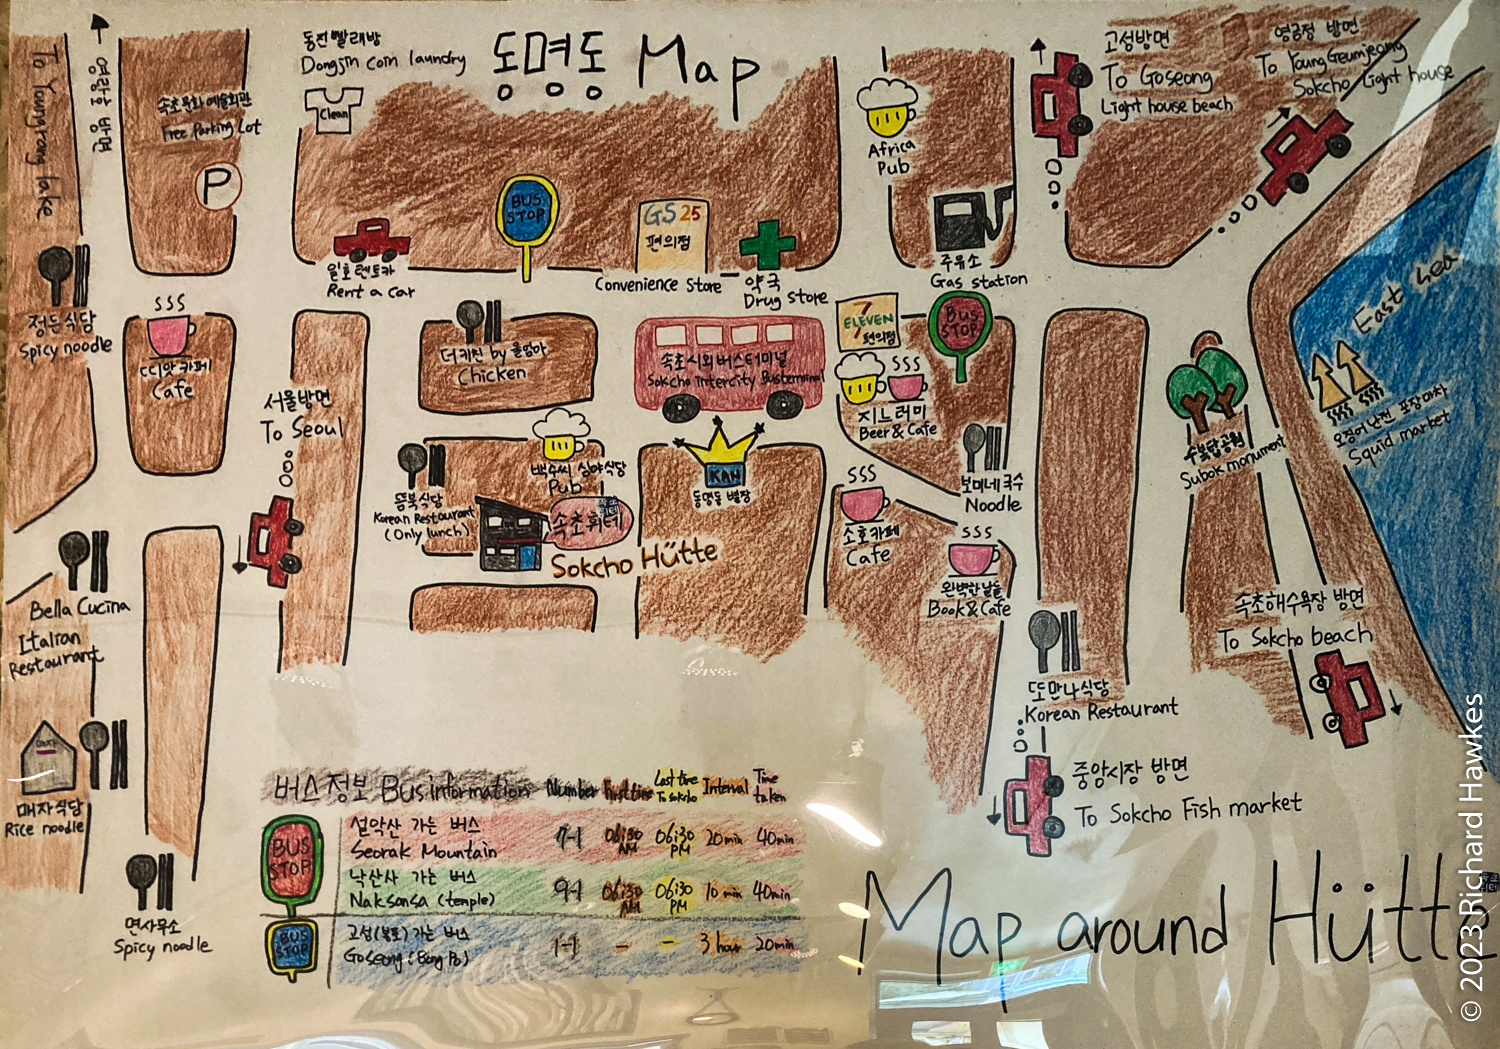 동명동 Map
동전빨래방
Dongjin coin laundry
Clean
영랑호 방면
To Youngrang lake
속초문화예술회관
Free Parking Lot
P
Africa
Pub
고성방면
To Goseong
Light house beach
영금정 방면
To YoungGeumjeong
Sokcho Light house
BUS
STOP
GS25
편의점
Convenience Store
약국
Drug store
주유소
Gas station
일호렌트카
Rent a car
정든식당
Spicy noodle
카페
Cafe
서울방면
To Seoul
더키친 by 울엄마
Chicken
속초시외버스터미널
Sokcho Intercity Busterminal
7
ELEVEN
편의점
BUS
STOP
지느러미
Beer & Cafe
보미네국수
Noodle
East Sea
오징어난전 포장마차
Squid market
수복탑공원
Subok monument
백수씨 심야식당
Pub
뜸북식당
Korean Restaurant
(Only lunch)
속초휘테
Sokcho Hütte
KAN
동명동 별장
소호카페
Cafe
완벽한날들
Book & Cafe
Bella Cucina
Italian
Restaurant
매자식당
Rice noodle
면사무소
Spicy noodle
또만나식당
Korean Restaurant
속초해수욕장 방면
To Sokcho beach
중앙시장 방면
To Sokcho Fish market
버스정보 Bus information Number First time Last time To Sokcho Interval Time taken
BUS
STOP
설악산 가는 버스
Seorak Mountain 7-1 06:30 AM 06:30 PM 20min 40min
낙산사 가는 버스
Naksansa (temple) 9-1 06:30 AM 06:30 PM 10 min 40min
BUS
STOP
고성(봉포) 가는 버스
Goseong (Bong Po) 1-1 - - 3 hour 20min
Map around Hütte
© 2023 Richard Hawkes